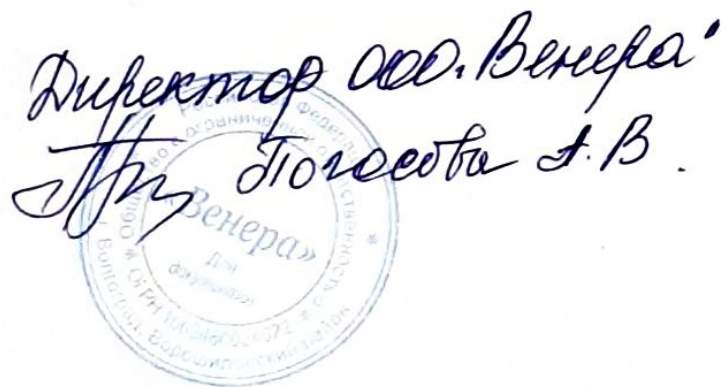 Директор ООО "Венера"
Погосова А.В.
Российская Федерация
Общество с ограниченной ответственностью
«Венера»
Для
документов
ОГРН
г. Волгоград, Ворошиловский район